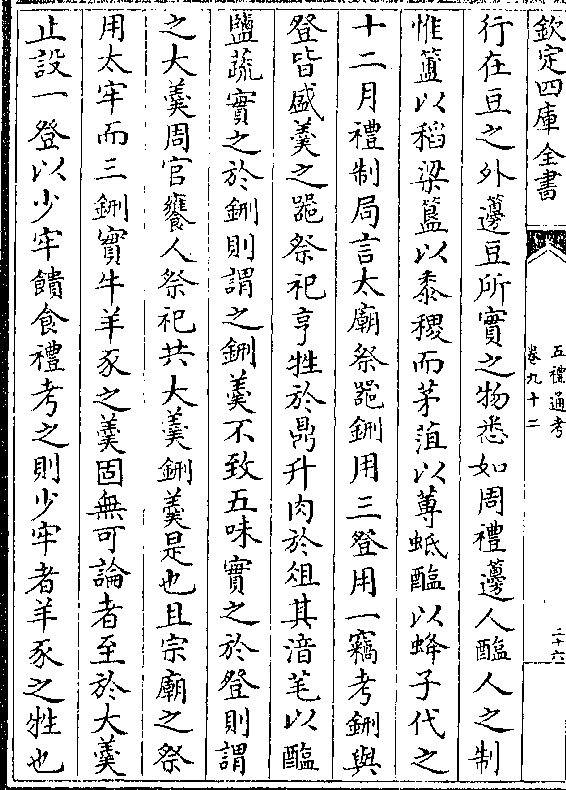 欽定四庫全書
五禮通考
卷九十二
二十六
行在豆之外籩豆所實之物悉如周禮籩人醢人之制
惟簠以稻粱簋以黍稷而茅菹以蓴蚳醢以蜂子代之
十二月禮制局言太廟祭器鉶用三登用一竊考鉶與
登皆盛羹之器祭祀亨牲於鼎升肉於俎其湆芼以醢
鹽蔬實之於鉶則謂之鉶羹不致五味實之於登則謂
之大羹周官饔人祭祀共大羹鉶羹是也且宗廟之祭
用太牢而三鉶實牛羊豕之羹固無可論者至於大羹
止設一登以少牢饋食禮考之則少牢者羊豕之牲也